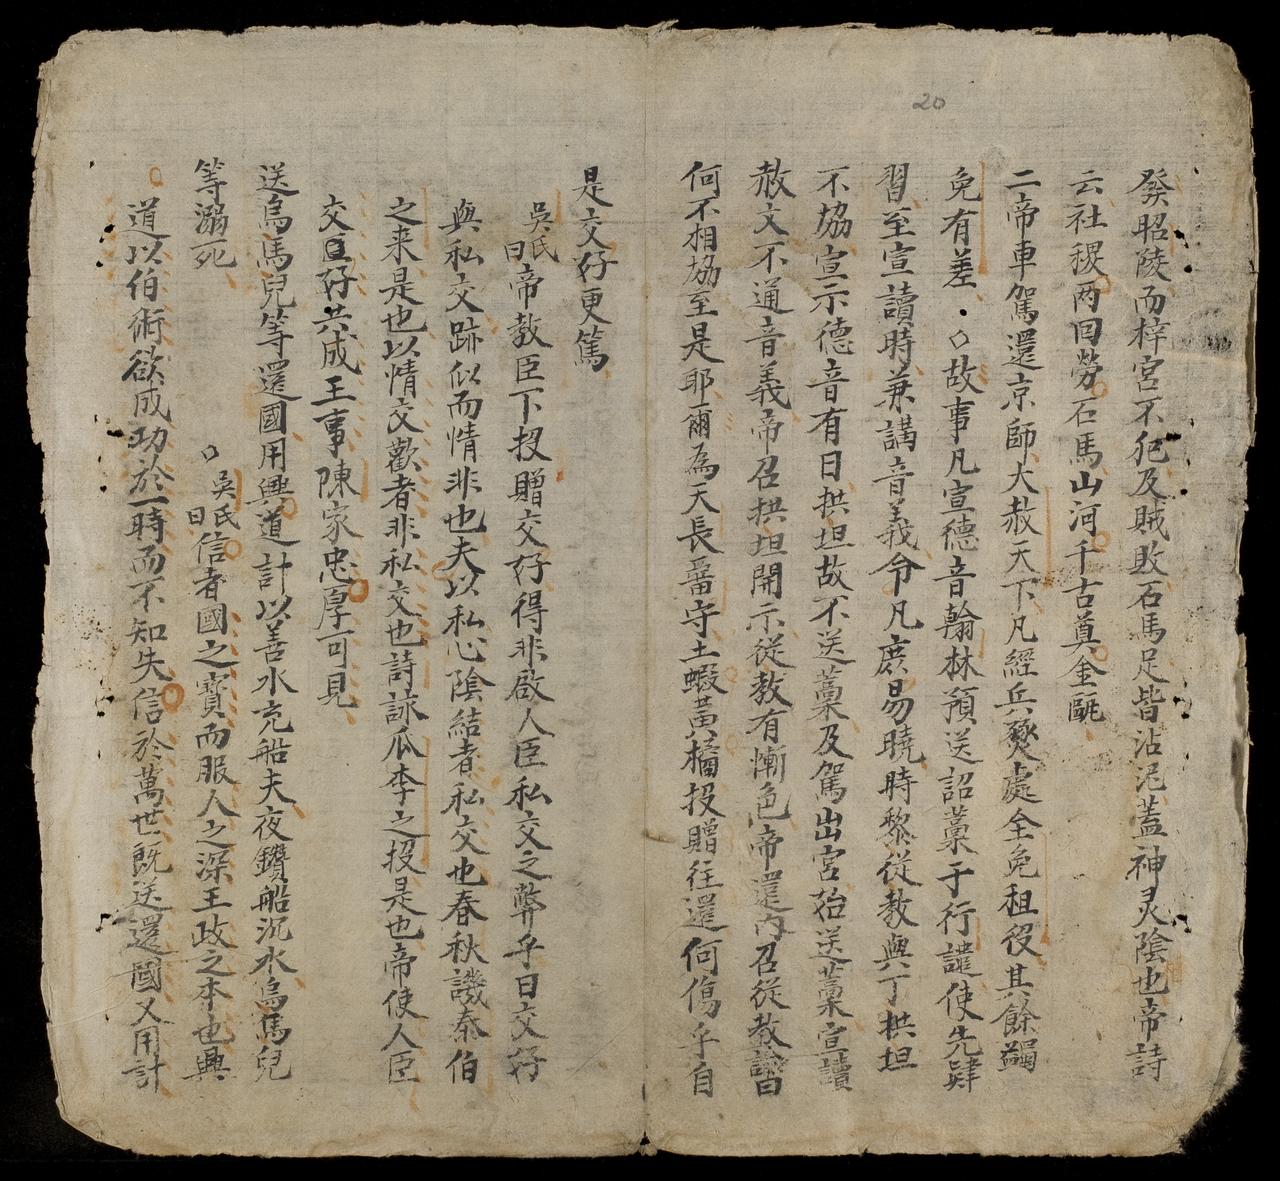 20
發昭陵而梓宮不犯及賊敗石馬足皆沾泥蓋神灵陰也帝詩
云社稷两回勞石馬山河千古奠金甌
二帝車駕還京師大赦天下凡經兵燹處全免租役其餘蠲
免有差故事凡宣德音翰林預送詔藁于行譴使先肄
習至宣讀時兼講音義令凡庶易曉時黎從教與丁拱坦
不協宣示德音有日拱坦故不送藁及駕出宮殆送藁宣讀
赦文不通音義帝召拱坦開示從教有慚色帝還内召從教諭曰
何不相協至是耶爾為天長畨守土蝦黃橘投贈往還何傷乎自
是交好更篤
吳氏曰帝教臣下投贈交好得非啟人臣私交之弊乎曰交好
與私交跡似而情非也夫以私心陰結者私交也春秋譏秦伯
之来是也以情交歡者非私交也詩詠瓜李之投是也帝使人臣
交臣好共成王事陳家忠厚可見
送烏馬兒等還國用興道計以善水充船夫夜鑽船沉水烏馬兒
等溺死
吳氏曰信者國之寳而服人之深王政之本也興
道以伯術欲成功於一時而不知失信於萬世既送還國又用計